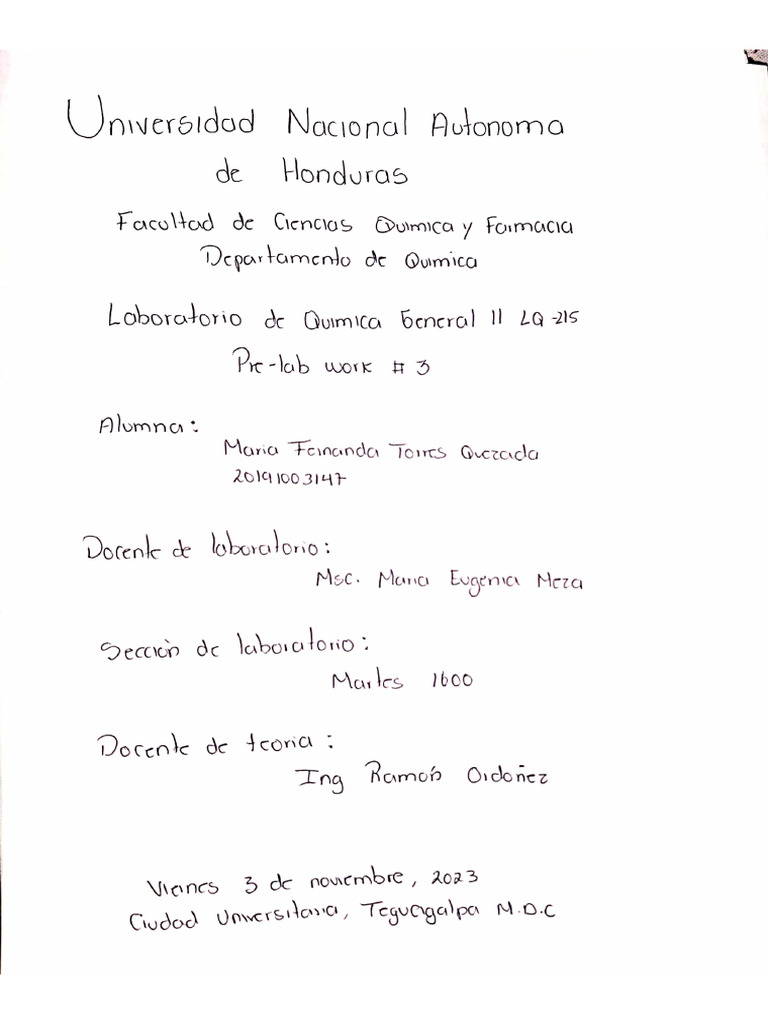 Universidad Nacional Autonoma
de Honduras
Facultad de Ciencias Quimica y Farmacia
Departamento de Quimica
Laboratorio de Quimica General II LQ-215
Pre-lab work # 3
Alumna:
Maria Fernanda Torres Quezada
20191003147
Docente de laboratorio:
Msc. Maria Eugenia Meza
Sección de laboratorio:
Martes 1600
Docente de teoria:
Ing Ramón Ordoñez
Viernes 3 de noviembre, 2023
Ciudad Universitaria, Tegucigalpa M.D.C